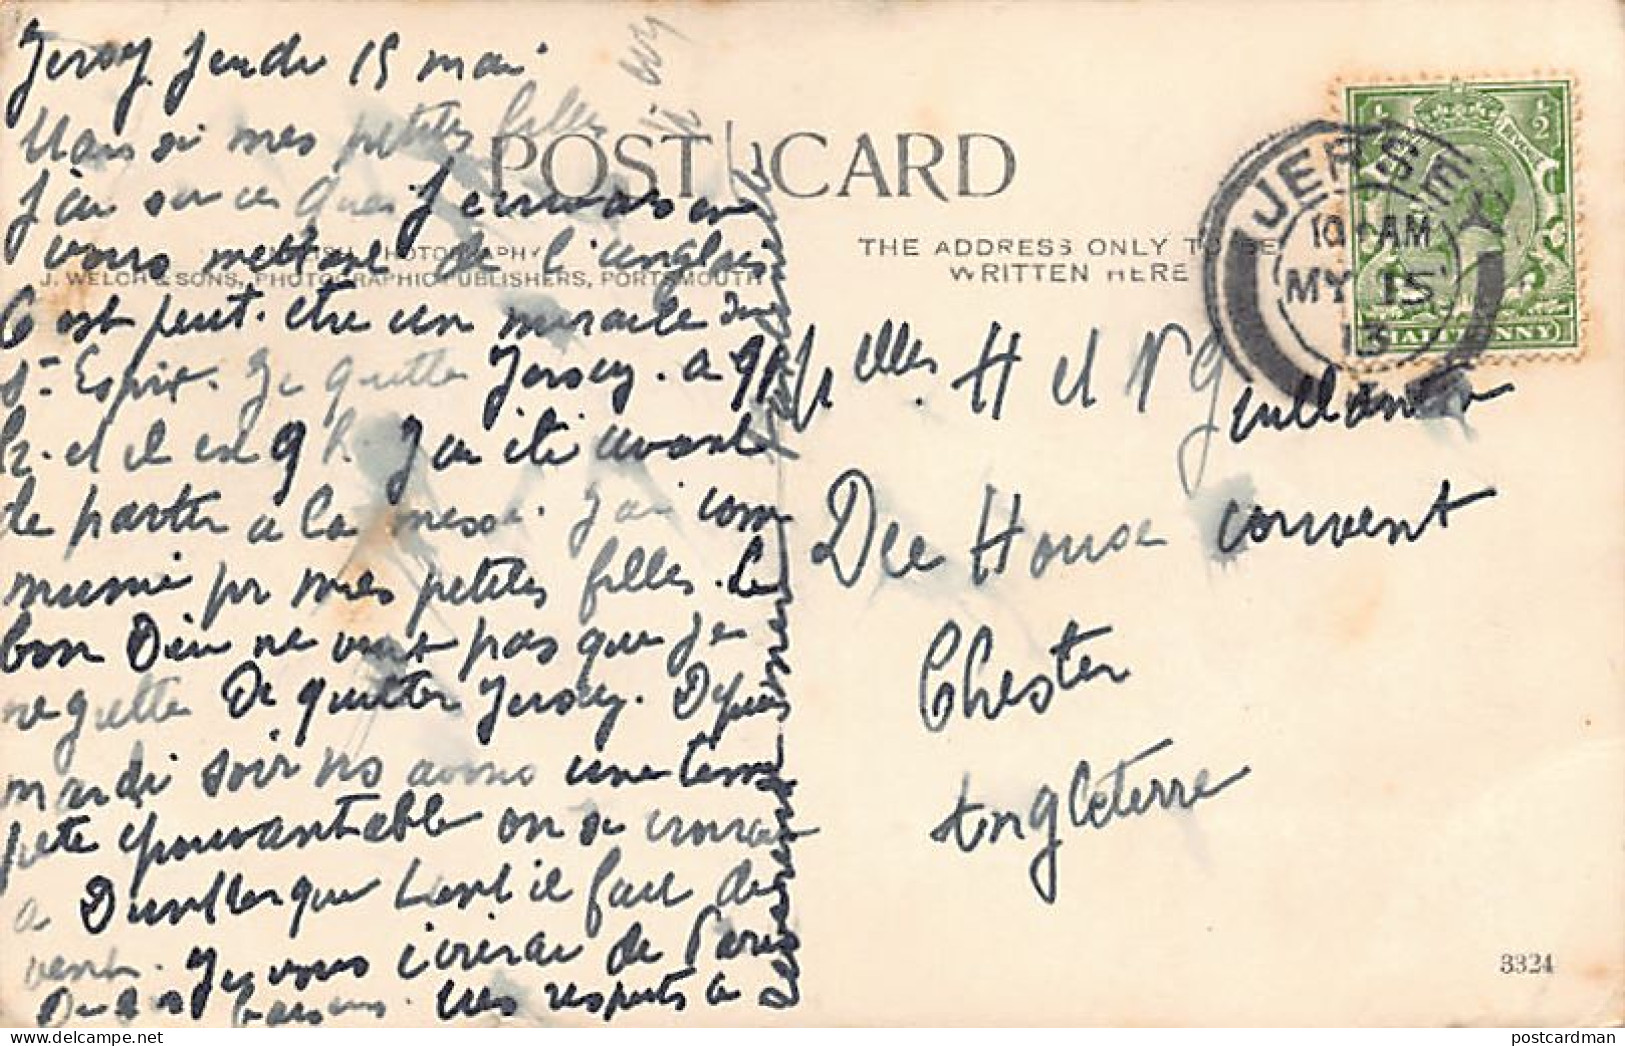 Jersey Jeudi 15 mai
Mais si mes petites filles
J'ai su ce que
vous mettre de l'anglais
C'est peut-être un miracle du
St Esprit. Je quitte Jersey. a 9
h. et il est 9 h. J'ai été avant
de partir à la messe. J'ai com
munié pr mes petites filles. Le
bon Dieu ne veut pas que je
regrette De quitter Jersey. Depuis
mardi soir ns avons une tem
pête épouvantable on se croirait
a Dunkerque tant il fait de
vent. Je vous écrirai de Paris
baisers. mes respects à
POST CARD
PHOTOGRAPHY
J. WELCH & SONS, PHOTOGRAPHIC PUBLISHERS, PORTSMOUTH
THE ADDRESS ONLY TO BE
WRITTEN HERE
JERSEY
10 AM
MY 15
13
½ ½
REVENUE
HALFPENNY
elles H et
Dee House convent
Chester
Angleterre
3324
postcardman